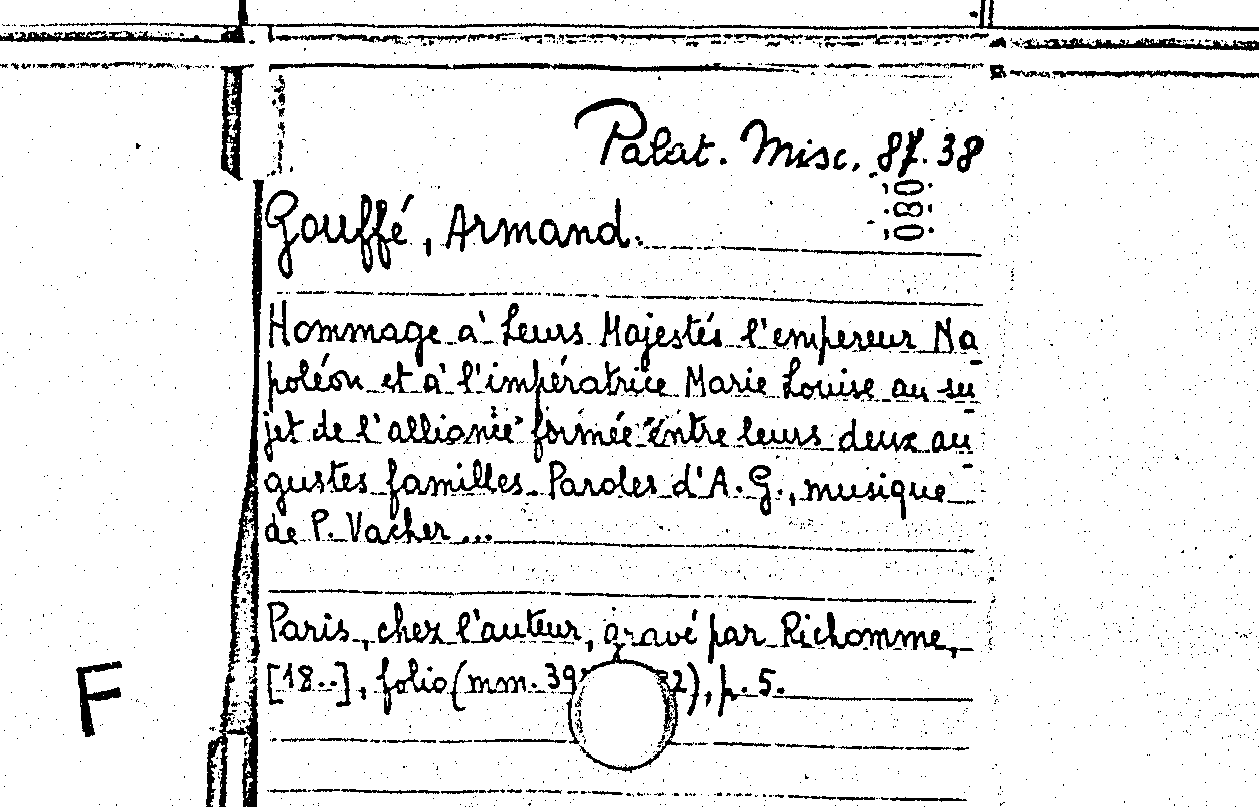 Palat. Misc. 87.38
080
Gouffé, Armand.
Hommage à Leurs Majestés l'empereur Na
poléon et à l'impératrice Marie Louise au su
jet de l'alliance formée entre leurs deux au
gustes familles. Paroles d'A. G., musique
de P. Vacher ...
Paris, chez l'auteur, gravé par Richomme,
[18..], folio (mm. 2), p. 5.
F